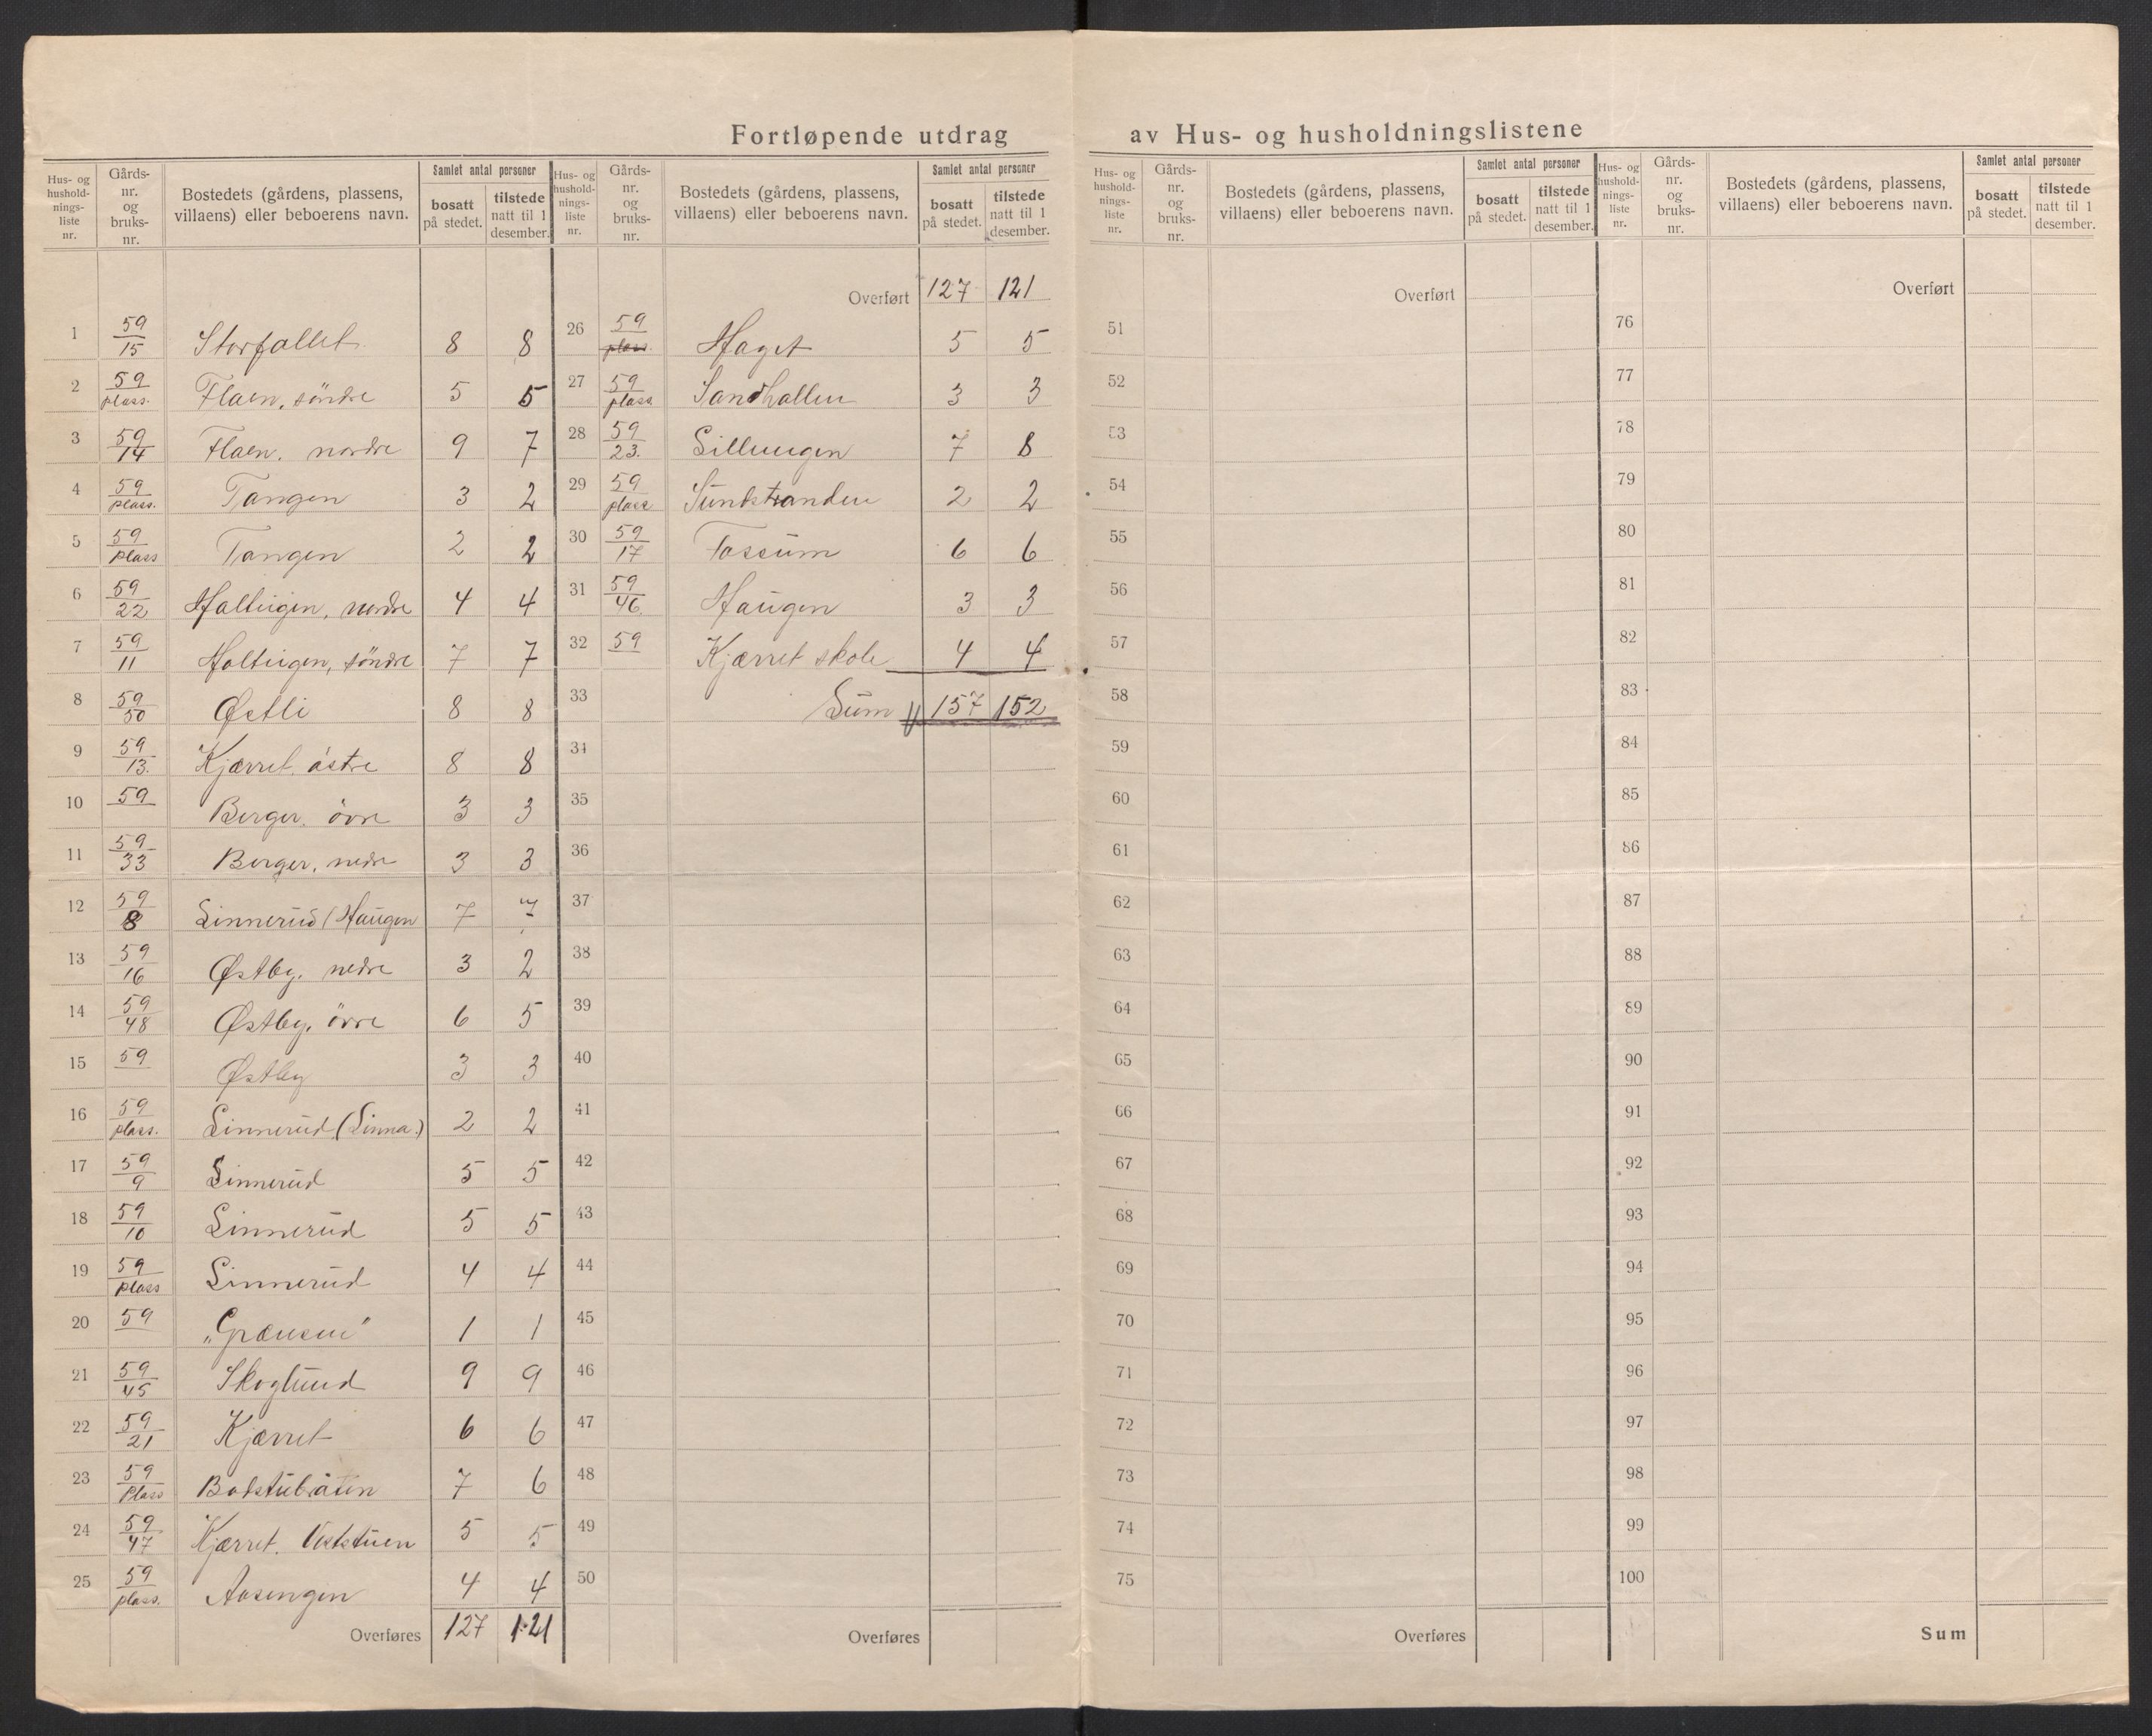 Fortløpende utdrag av Hus- og husholdningslistene
Hus- og hushold- nings- liste nr. | Gårds- nr. og bruks- nr. | Bostedets (gårdens, plassens, villaens) eller beboerens navn. | Samlet antal personer | bosatt på stedet. | tilstede natt til 1 desember.
1 59/15 Storfallet 8 8
2 59/plass. Flaen, söndre 5 5
3 59/14 Flaen, nordre 9 7
4 59/plass. Tangen 3 2
5 59/plass Tangen 2 2
6 59/22 nordre 4 4
7 59/11 söndre 7 7
8 59/50 Østli 8 8
9 59/13. Kjærret, östre 8 8
10 59 Berger, övre 3 3
11 59/33 Berger, nedre 3 3
12 59/8 Linnerud (Haugen 7 7
13 59/16 Østby, nedre 3 2
14 59/48 Østby, övre 6 5
15 59 Østby 3 3
16 59/plass. Linnerud (Linna.) 2 2
17 59/9 Linnerud 5 5
18 59/10 Linnerud 5 5
19 59/plass Linnerud 4 4
20 59 „Grænsen" 1 1
21 59/45 Skoglund 9 9
22 59/21 Kjærret 6 6
23 59/Plass Badstubråten 7 6
24 59/47 Kjærret, Veststuen 5 5
25 59/plass. Aasengen 4 4
Overføres 127 121
Hus- og hushold- nings- liste nr. | Gårds- nr. og bruks- nr. | Bostedets (gårdens, plassens, villaens) eller beboerens navn. | Samlet antal personer | bosatt på stedet. | tilstede natt til 1 desember.
Overført 127 121
26 59/plass. Haget 5 5
27 59/plass Sandhallen 3 3
28 59/23. 7 8
29 59/plass Sundstranden 2 2
30 59/17 Fossum 6 6
31 59/46. Haugen 3 3
32 59 Kjærret skole 4 4
33 Sum 157 152
34
35
36
37
38
39
40
41
42
43
44
45
46
47
48
49
50
Overføres
Hus- og hushold- nings- liste nr. | Gårds- nr. og bruks- nr. | Bostedets (gårdens, plassens, villaens) eller beboerens navn. | Samlet antal personer | bosatt på stedet. | tilstede natt til 1 desember.
Overført
51
52
53
54
55
56
57
58
59
60
61
62
63
64
65
66
67
68
69
70
71
72
73
74
75
Overføres
Hus- og hushold- nings- liste nr. | Gårds- nr. og bruks- nr. | Bostedets (gårdens, plassens, villaens) eller beboerens navn. | Samlet antal personer | bosatt på stedet. | tilstede natt til 1 desember.
Overført
76
77
78
79
80
81
82
83
84
85
86
87
88
89
90
91
92
93
94
95
96
97
98
99
100
Sum